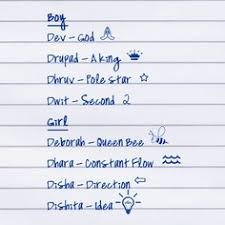 Boy
Dev - God
Drupad - A king
Dhruv - Pole star
Dwit - Second 2
Girl
Deborah - Queen Bee
Dhara - Constant Flow
Disha - Direction
Dishita - Idea